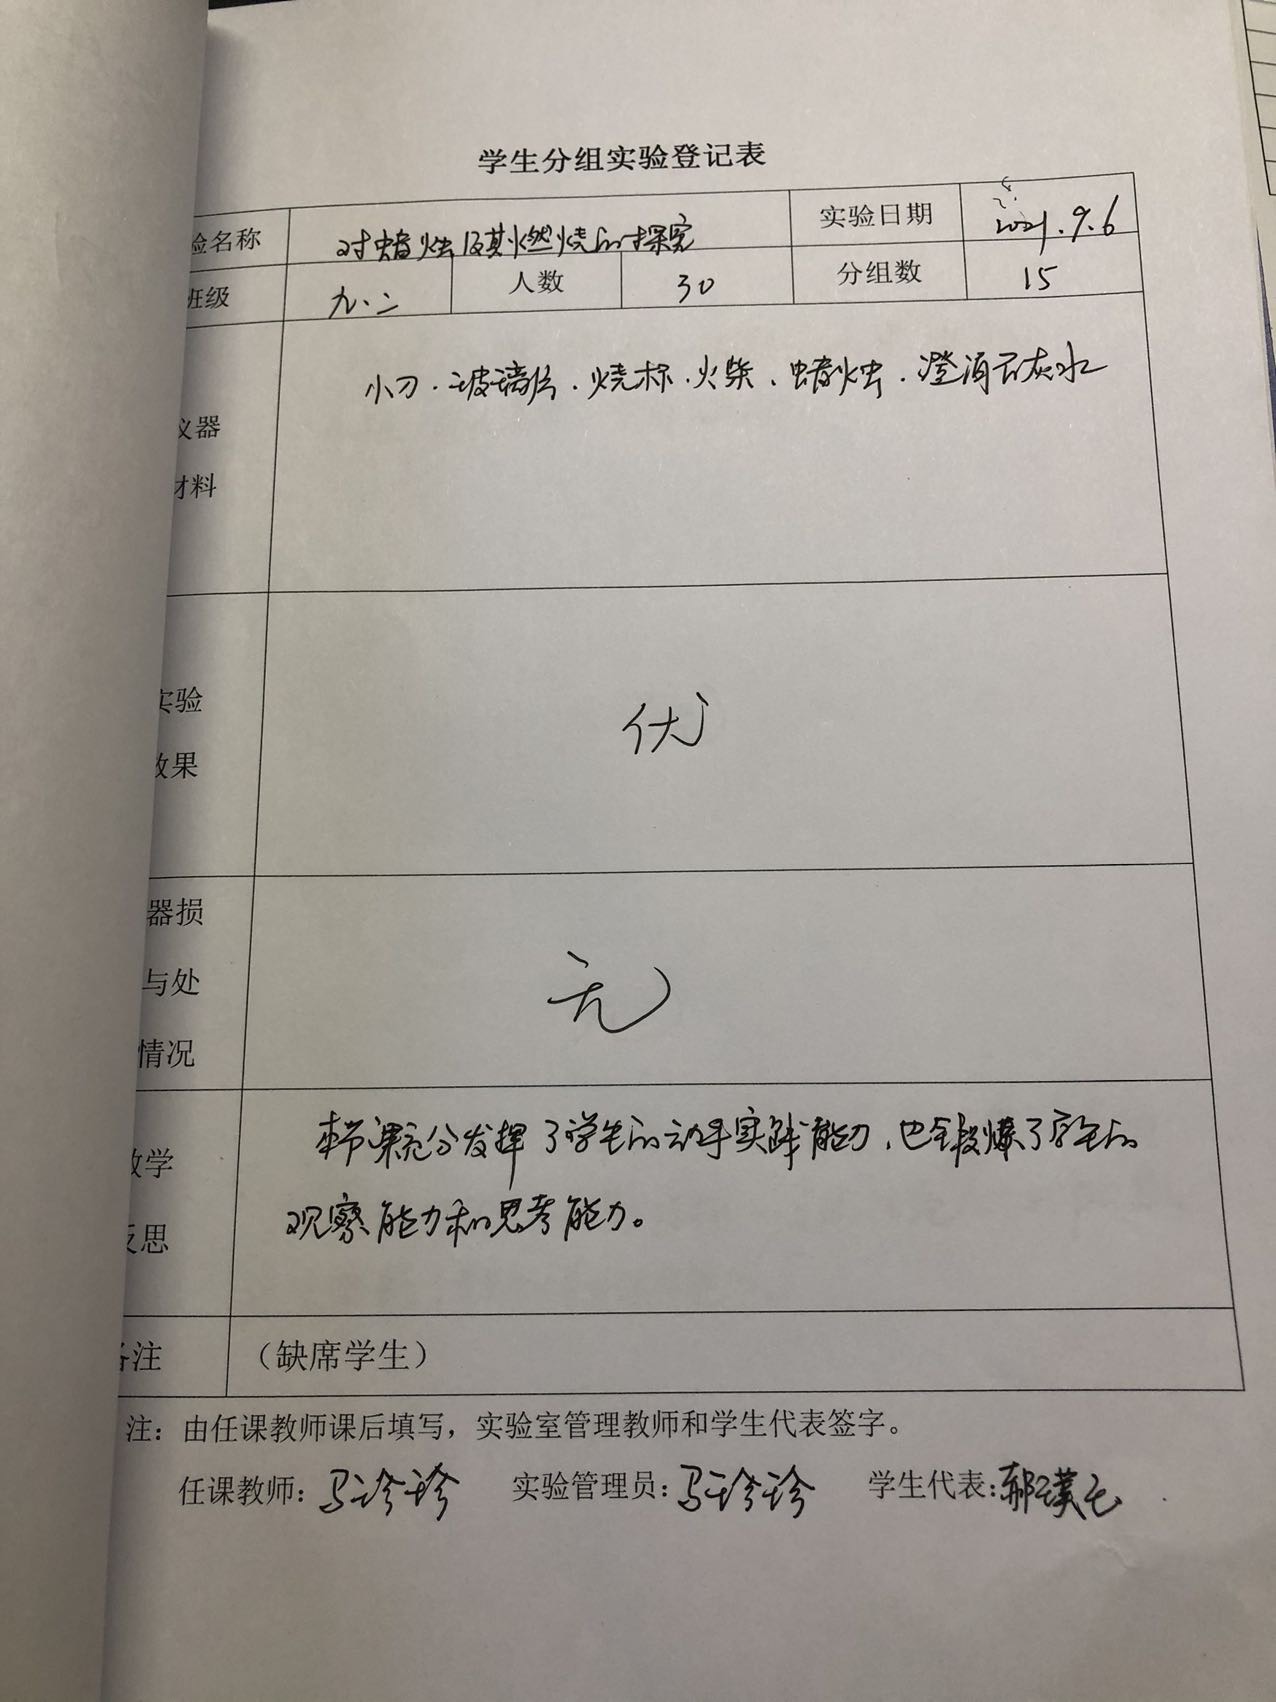 学生分组实验登记表
验名称 对蜡烛及其燃烧的探究 实验日期 2021.9.6
班级 九.二 人数 30 分组数 15
仪器
材料
小刀.玻璃片.烧杯.火柴.蜡烛.澄清石灰水
实验
效果
优
器损
与处
情况
无
教学
反思
本节课充分发挥了学生的动手实践能力,也锻炼了学生的
观察能力和思考能力。
备注 （缺席学生）
注：由任课教师课后填写，实验室管理教师和学生代表签字。
任课教师：马珍珍 实验管理员：马珍珍 学生代表：郝璞